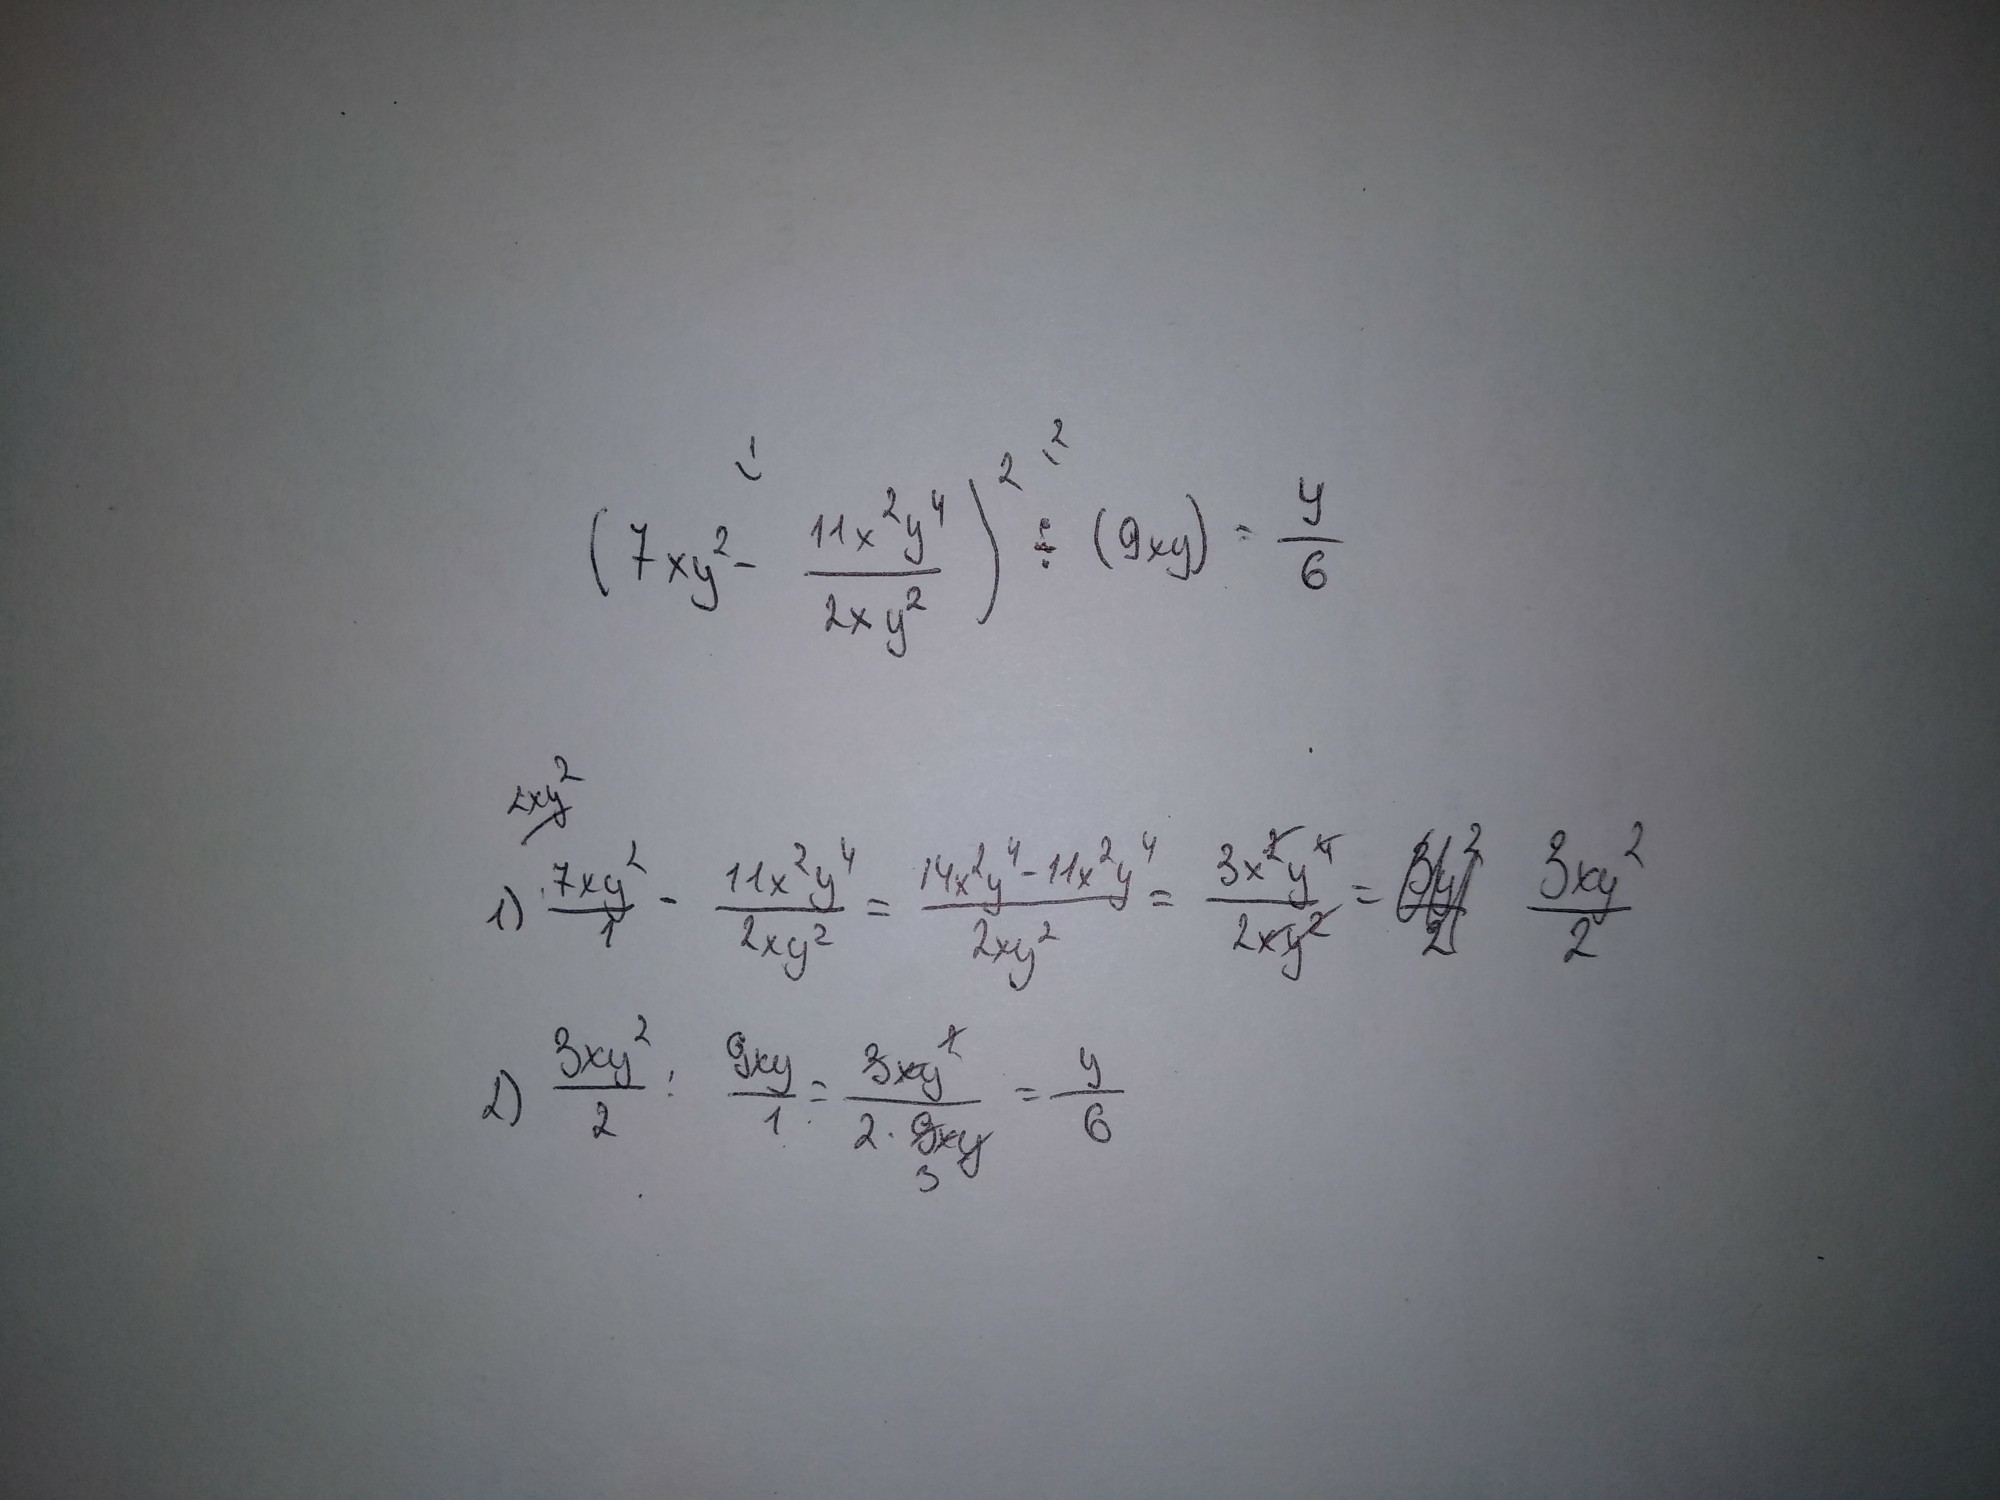 (7xy² - 11x²y⁴/2xy²)² ÷ (9xy) = y/6
1) 7xy²/1 - 11x²y⁴/2xy² = 14x²y⁴ - 11x²y⁴/2xy² = 3x²y⁴/2xy² = 3xy²/2
2) 3xy²/2 : 9xy/1 = 3xy²/2·9xy = y/6